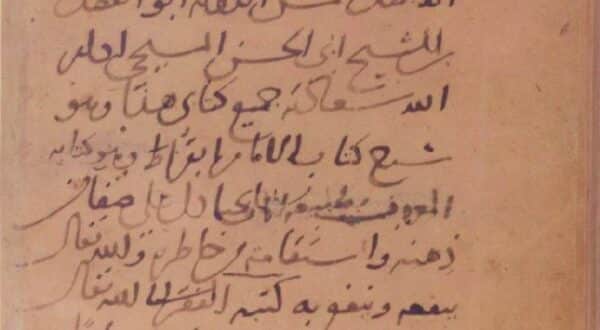 ابو الفضل
بن الشيخ ابى الحسن المسيحى ادام
الله سعادته جميع كتابى هذا وهو
شرح كتاب الامام ابقراط وهو كتابه
المعروف بطبيعة الانسان دل على صفاء
ذهنه واستقامة والله تعالى
ينفعه وينفع به كتبه الفقير الى الله تعالى